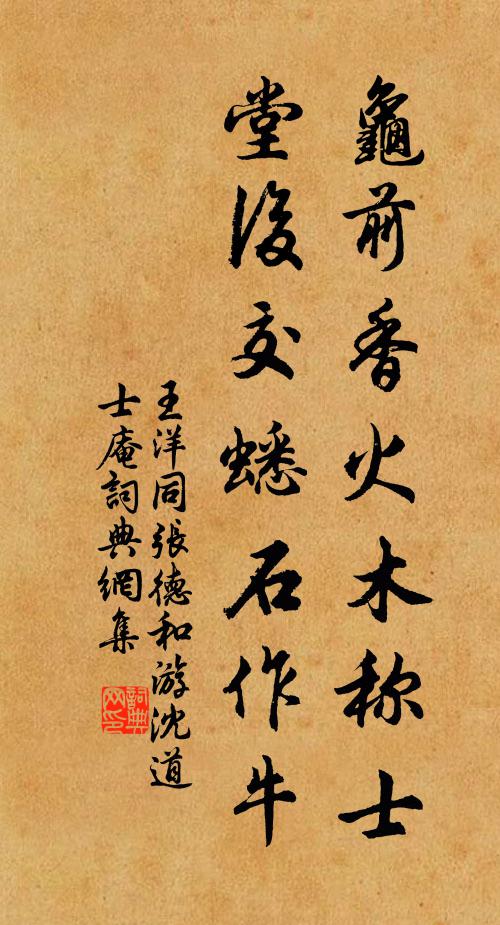 龜前香火木称士
堂後交蟋石作牛
王洋同張德和游沈道
士庵詞典網集
詞典
网印